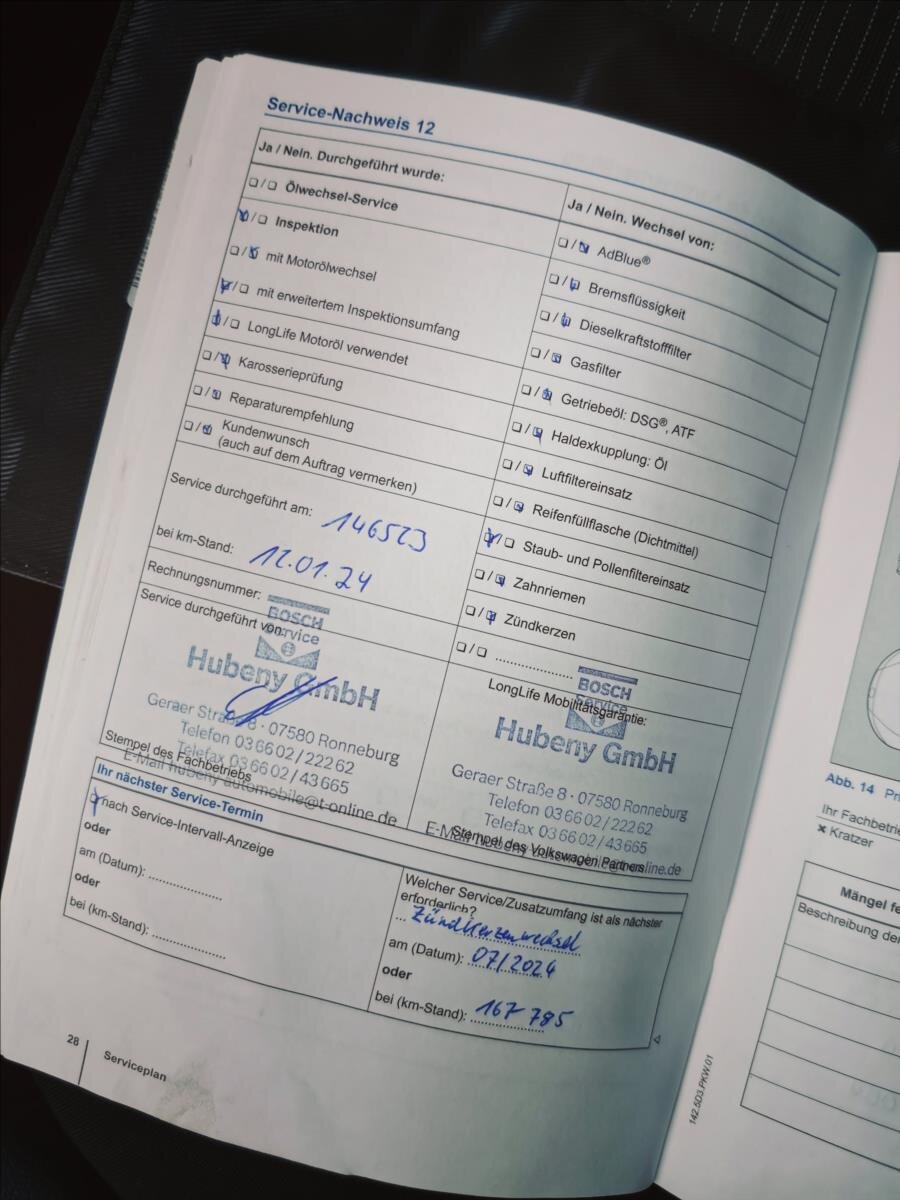 Service-Nachweis 12
Ja / Nein. Durchgeführt wurde:
❑ / ❑ Ölwechsel-Service
❑ / ❑ Inspektion
❑ / ❑ mit Motorölwechsel
❑ / ❑ mit erweitertem Inspektionsumfang
❑ / ❑ LongLife Motoröl verwendet
❑ / ❑ Karosserieprüfung
❑ / ❑ Reparaturempfehlung
❑ / ❑ Kundenwunsch
(auch auf dem Auftrag vermerken)
Service durchgeführt am: 146523
bei km-Stand: 12.01.24
Rechnungsnummer:
Service durchgeführt von:
BOSCH
Service
Hubeny GmbH
Geraer Straße 8 · 07580 Ronneburg
Telefon 03 66 02 / 222 62
Telefax 03 66 02 / 43 665
E-Mail hubeny automobile@t-online.de
Stempel des Fachbetriebs
Ja / Nein. Wechsel von:
❑ / ❑ AdBlue®
❑ / ❑ Bremsflüssigkeit
❑ / ❑ Dieselkraftstofffilter
❑ / ❑ Gasfilter
❑ / ❑ Getriebeöl: DSG®, ATF
❑ / ❑ Haldexkupplung: Öl
❑ / ❑ Luftfiltereinsatz
❑ / ❑ Reifenfüllflasche (Dichtmittel)
❑ / ❑ Staub- und Pollenfiltereinsatz
❑ / ❑ Zahnriemen
❑ / ❑ Zündkerzen
❑ / ❑ ....................
LongLife Mobilitätsgarantie:
BOSCH
Service
Hubeny GmbH
Geraer Straße 8 · 07580 Ronneburg
Telefon 03 66 02 / 222 62
Telefax 03 66 02 / 43 665
E-Mail hubeny automobile@t-online.de
Stempel des Volkswagen Partners
Ihr nächster Service-Termin
❑ nach Service-Intervall-Anzeige
oder
am (Datum): ..................
oder
bei (km-Stand): ..................
Welcher Service/Zusatzumfang ist als nächster
erforderlich?
Zündkerzenwechsel
am (Datum): 07/2024
oder
bei (km-Stand): 167 785
28
Serviceplan
142.5D3.PKW.01
Abb. 14
Ihr
× Kratzer
Mängel
Beschreibung